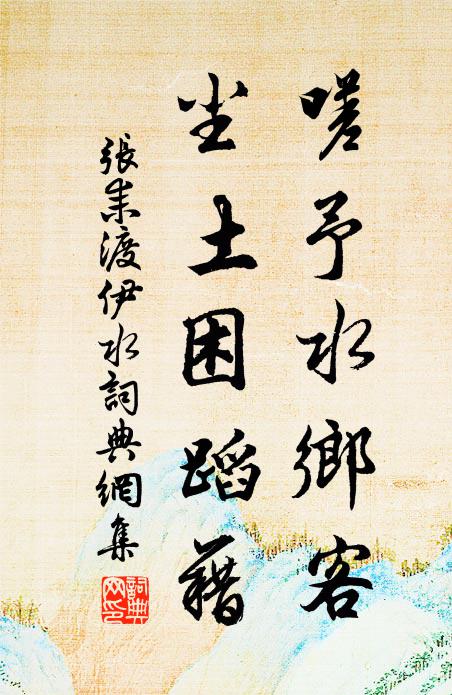 嗟予水鄉客
尘土困蹈藉
張耒渡伊水詞典網集
詞典網印